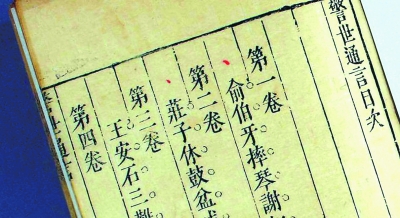 警世通言目次
第一卷
俞伯牙摔琴謝
第二卷
莊子休鼓盆成
第三卷
王安石三難
第四卷